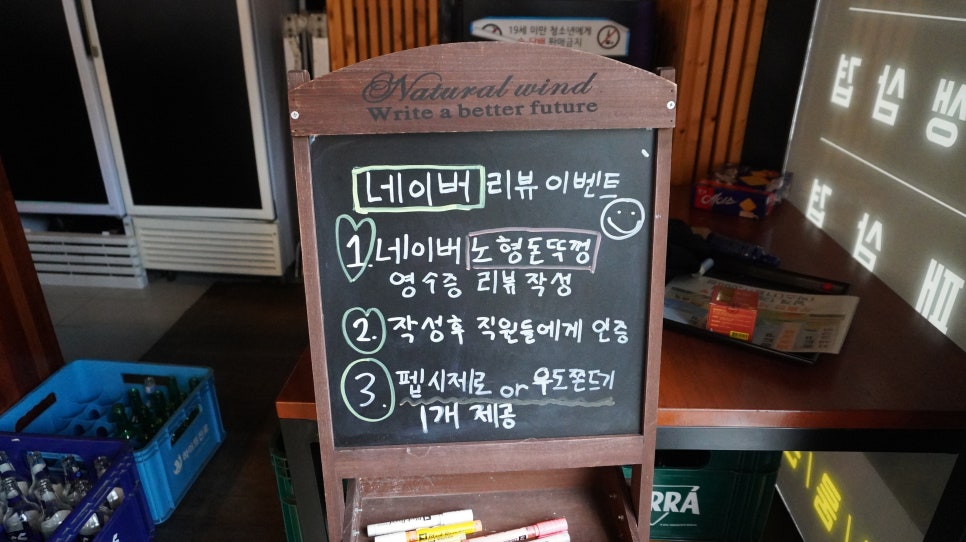 19세 미만 청소년에게
술 담배 판매금지
Natural wind
Write a better future
네이버 리뷰 이벤트
1. 네이버 노형돈뚜껑
영수증 리뷰 작성
2. 작성후 직원들에게 인증
3. 펩시제로 or 우도쫀드기
1개 제공
생삼겹
파삼겹
하이트진로
RRÁ